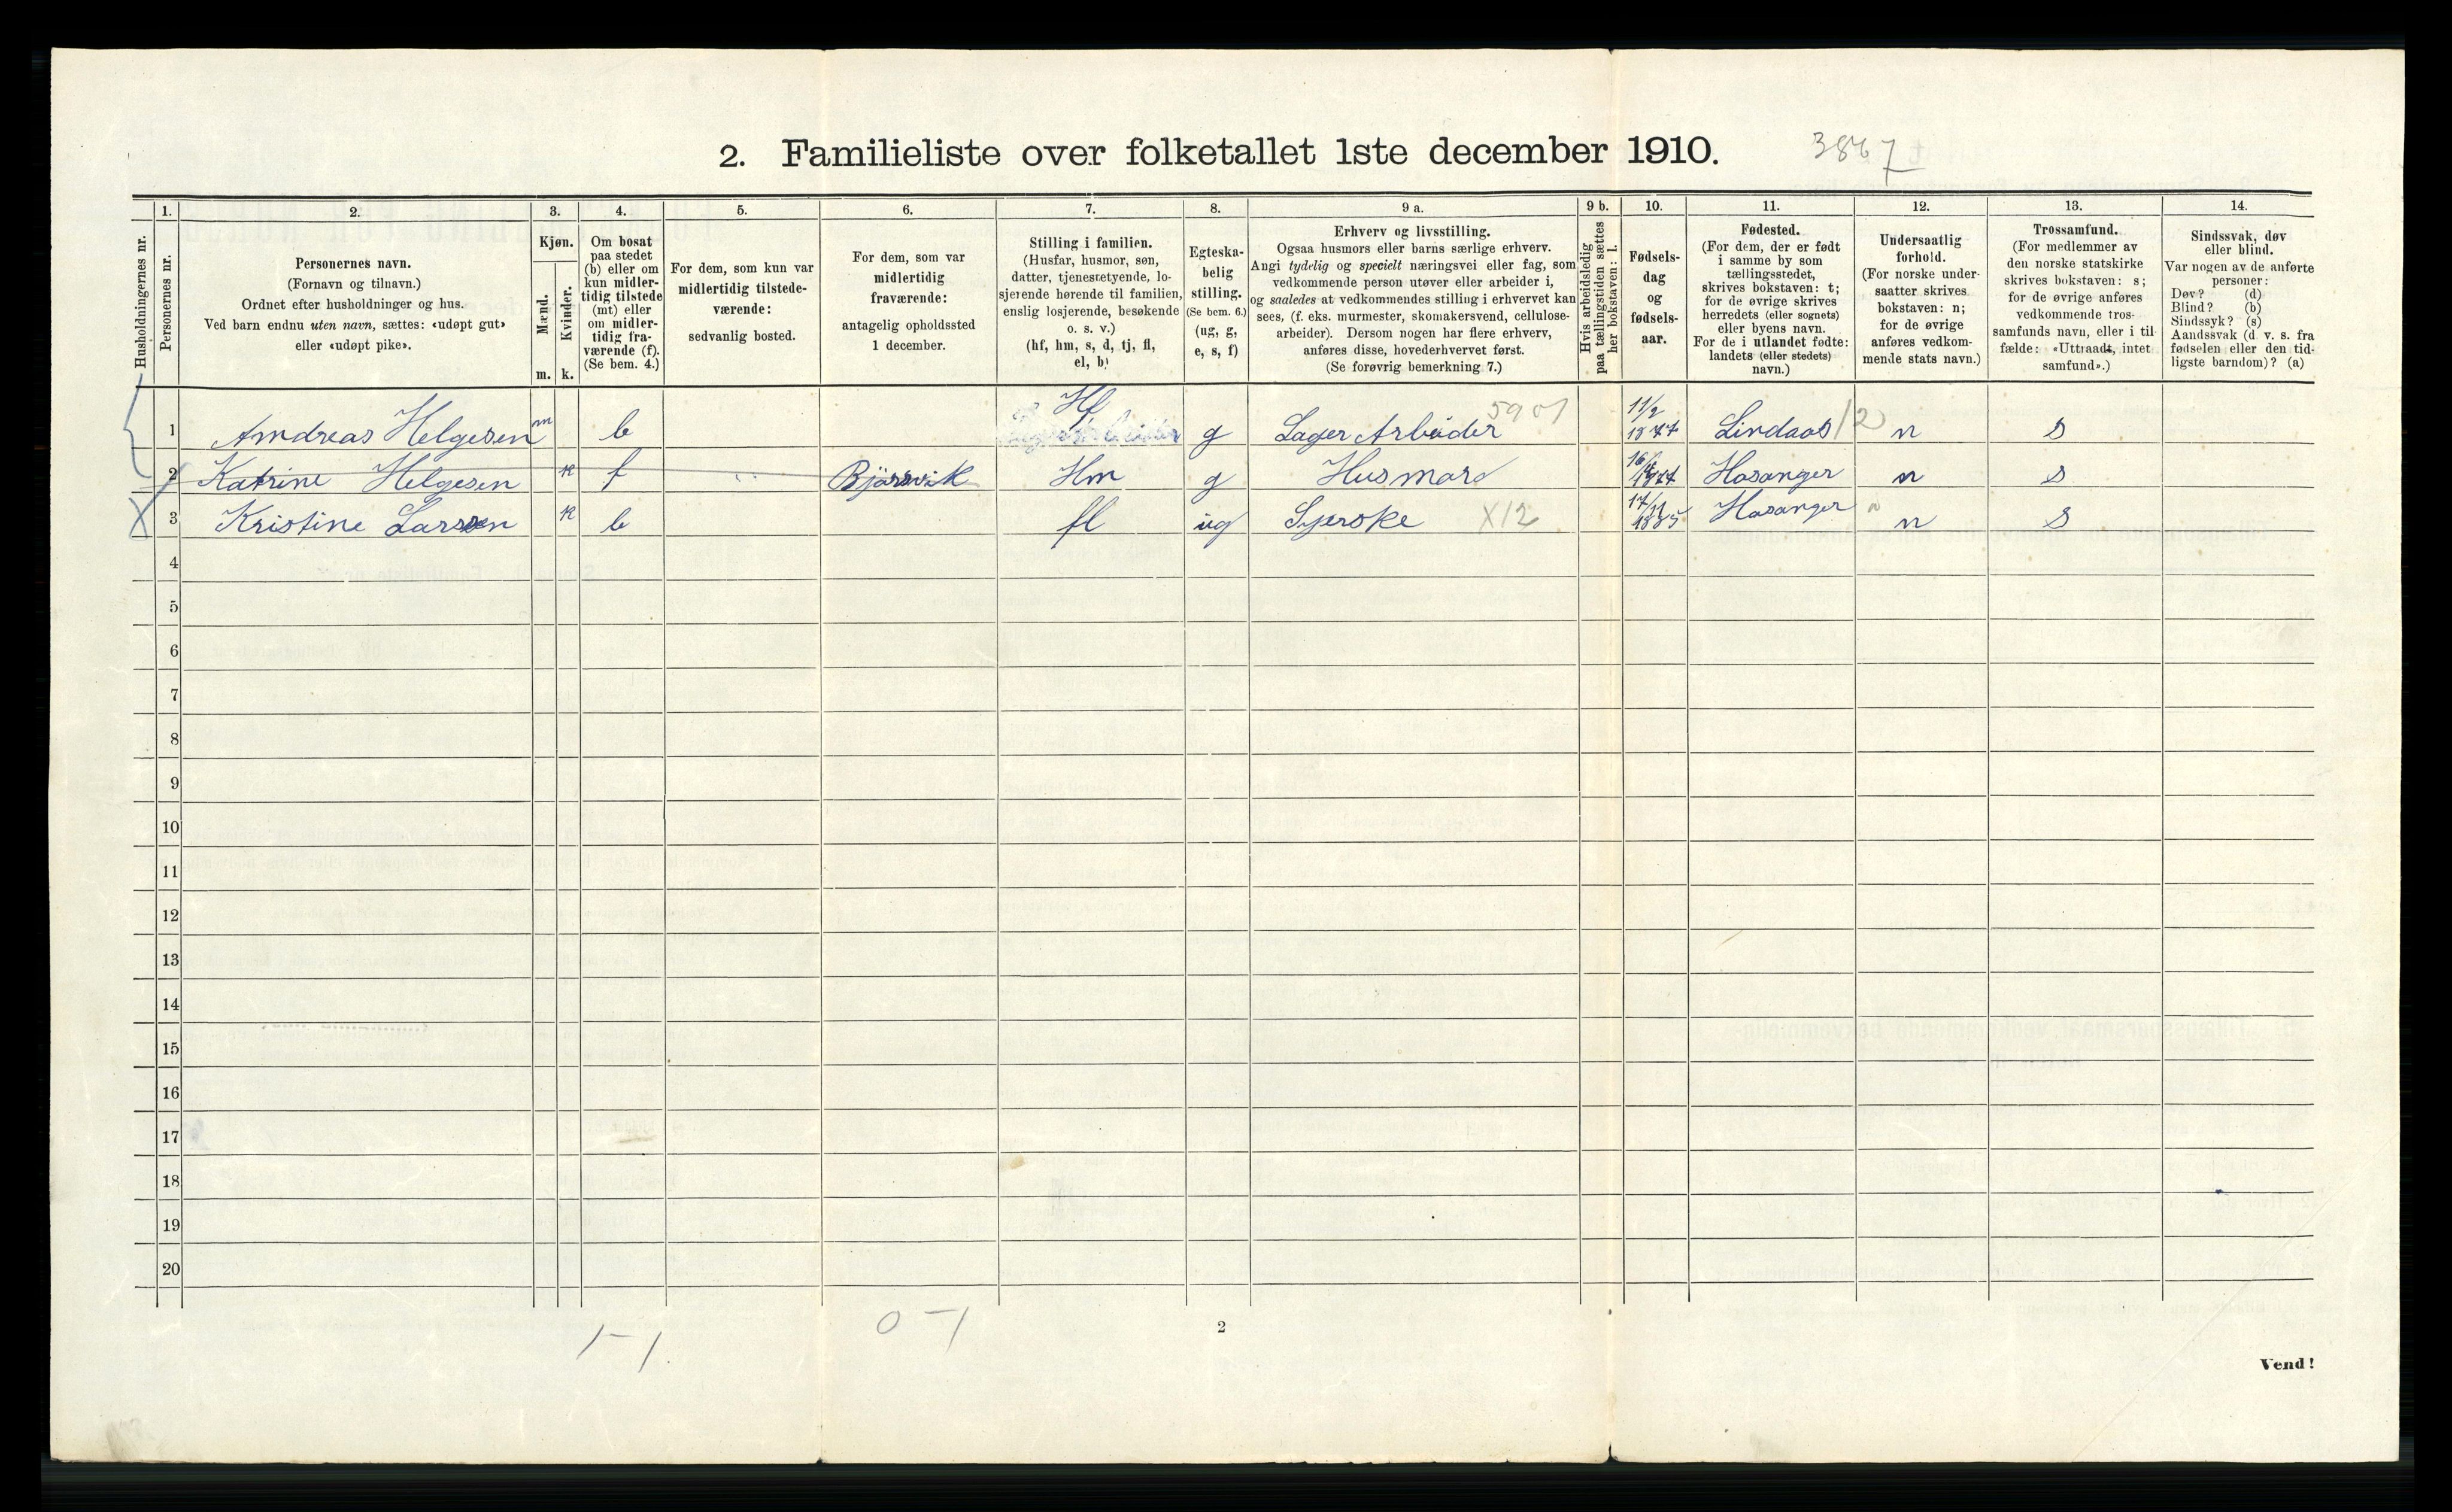 2. Familieliste over folketallet 1ste december 1910.
3867
1. 2. 3. 4. 5. 6. 7. 8. 9 a. 9 b. 10. 11. 12. 13. 14.
Husholdningernes nr.
Personernes nr.
Personernes navn.
(Fornavn og tilnavn.)
Ordnet efter husholdninger og hus.
Ved barn endnu uten navn, sættes: «udøpt gut»
eller «udøpt pike».
Kjøn.
Mænd.
Kvinder.
m. k.
Om bosat
paa stedet
(b) eller om
kun midler-
tidig tilstede
(mt) eller
om midler-
tidig fra-
værende (f).
(Se bem. 4.)
For dem, som kun var
midlertidig tilstede-
værende:
sedvanlig bosted.
For dem, som var
midlertidig
fraværende:
antagelig opholdssted
1 december.
Stilling i familien.
(Husfar, husmor, søn,
datter, tjenestetyende, lo-
sjerende hørende til familien,
enslig losjerende, besøkende
o. s. v.)
(hf, hm, s, d, tj, fl,
el, b)
Egteska-
belig
stilling.
(Se bem. 6.)
(ug, g,
e, s, f)
Erhverv og livsstilling.
Ogsaa husmors eller barns særlige erhverv.
Angi tydelig og specielt næringsvei eller fag, som
vedkommende person utøver eller arbeider i,
og saaledes at vedkommendes stilling i erhvervet kan
sees, (f. eks. murmester, skomakersvend, cellulose-
arbeider). Dersom nogen har flere erhverv,
anføres disse, hovederhvervet først.
(Se forøvrig bemerkning 7.)
Hvis arbeidsledig
paa tællingstiden sættes
her bokstaven: l.
Fødsels-
dag
og
fødsels-
aar.
Fødested.
(For dem, der er født
i samme by som
tællingsstedet,
skrives bokstaven: t;
for de øvrige skrives
herredets (eller sognets)
eller byens navn.
For de i utlandet fødte:
landets (eller stedets)
navn.)
Undersaatlig
forhold.
(For norske under-
saatter skrives
bokstaven: n;
for de øvrige
anføres vedkom-
mende stats navn.)
Trossamfund.
(For medlemmer av
den norske statskirke
skrives bokstaven: s;
for de øvrige anføres
vedkommende tros-
samfunds navn, eller i til-
fælde: «Uttraadt, intet
samfund».)
Sindssvak, døv
eller blind.
Var nogen av de anførte
personer:
Døv? (d)
Blind? (b)
Sindssyk? (s)
Aandssvak (d. v. s. fra
fødselen eller den tid-
ligste barndom)? (a)
1 Andreas Helgesen m b Hf g Lager Arbeider 5901 11/2 1877 Lindaas 12 n s
2 Katrine Helgesen k f Bjørsvik Hm g Husmor 1877 Hosanger n s
3 Kristine Larsen k b fl ug Syerske X12 17/11 1885 Hosanger n s
4
5
6
7
8
9
10
11
12
13
14
15
16
17
18
19
20
1-1
0-1
2
Vend!